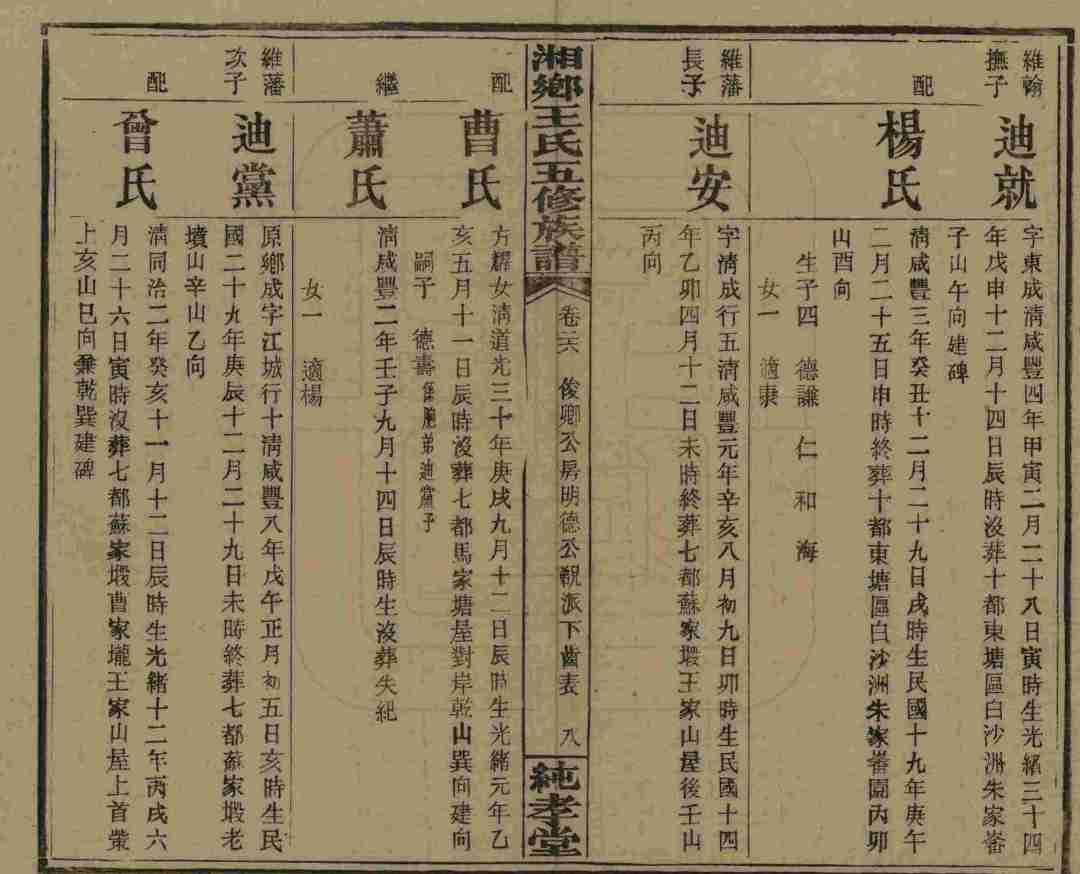 維翰
撫子
迪就
字東成淸咸豐四年甲寅二月二十八日寅時生光緒三十四
年戊申十二月十四日辰時沒葬十都東塘區白沙洲朱家崙
子山午向建碑
配
楊氏
淸咸豐三年癸丑十二月二十九日戌時生民國十九年庚午
二月二十五日申時終葬十都東塘區白沙洲朱家蕃園丙卯
山酉向
生子四 德謙 仁 和 海
女一 適康
維藩
長子
迪安
字淸成行五淸咸豐元年辛亥八月初九日卯時生民國十四
年乙卯四月十二日未時終葬七都蘇家塅王家山屋後壬山
丙向
湘鄉王氏五修族譜
卷二六 俊卿公房明德公 派下齒表 八
純孝堂
配
曹氏
方耀女淸道光三十年庚戌九月十二日辰時生光緒元年乙
亥五月十一日辰時沒葬七都馬家塘屋對岸乾山巽向建向
嗣子 德壽係胞弟迪黨子
繼
蕭氏
淸咸豐二年壬子九月十四日辰時生沒葬失紀
女一 適楊
維藩
次子
迪黨
原鄉成字江城行十淸咸豐八年戊午正月初五日亥時生民
國二十九年庚辰十二月二十九日未時終葬七都蘇家塅老
墳山辛山乙向
配
曾氏
淸同治二年癸亥十一月十二日辰時生光緒十二年丙戌六
月二十六日寅時沒葬七都蘇家塅曹家壠王家山屋上首業
上亥山巳向兼乾巽建碑